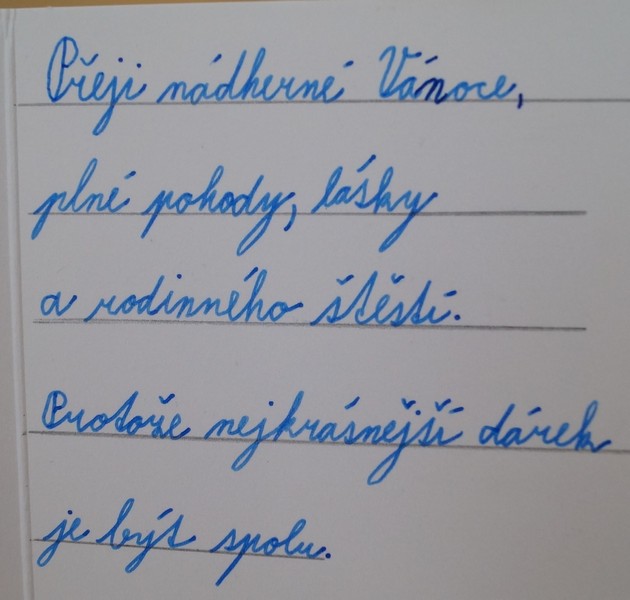 Přeji nádherné Vánoce,
plné pohody, lásky
a rodinného štěstí.
Protože nejkrásnější dárek
je být spolu.